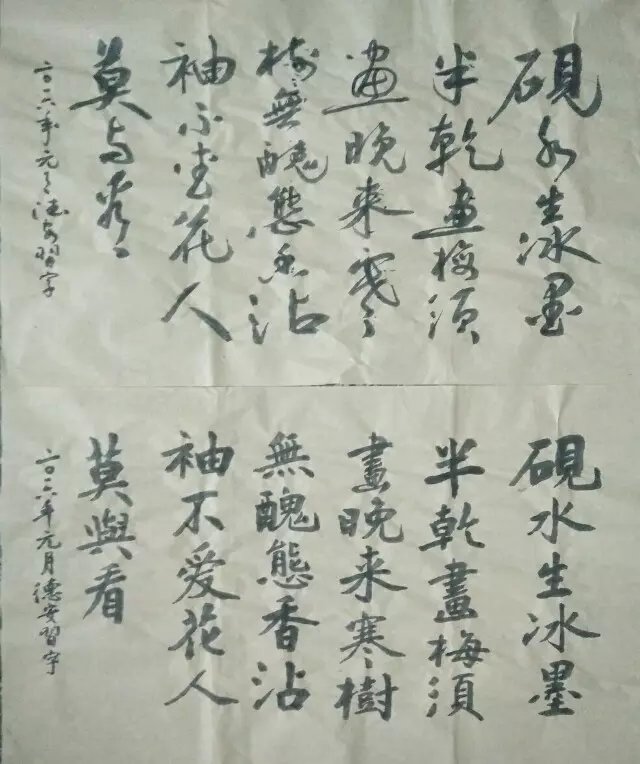 硯水生冰墨
半乾畫梅須
畫晚来寒
樹無醜態香沾
袖不愛花人
莫与看
二〇一六年元月德安習字
硯水生冰墨
半乾畫梅須
畫晚来寒樹
無醜態香沾
袖不愛花人
莫與看
二〇一六年元月德安習字